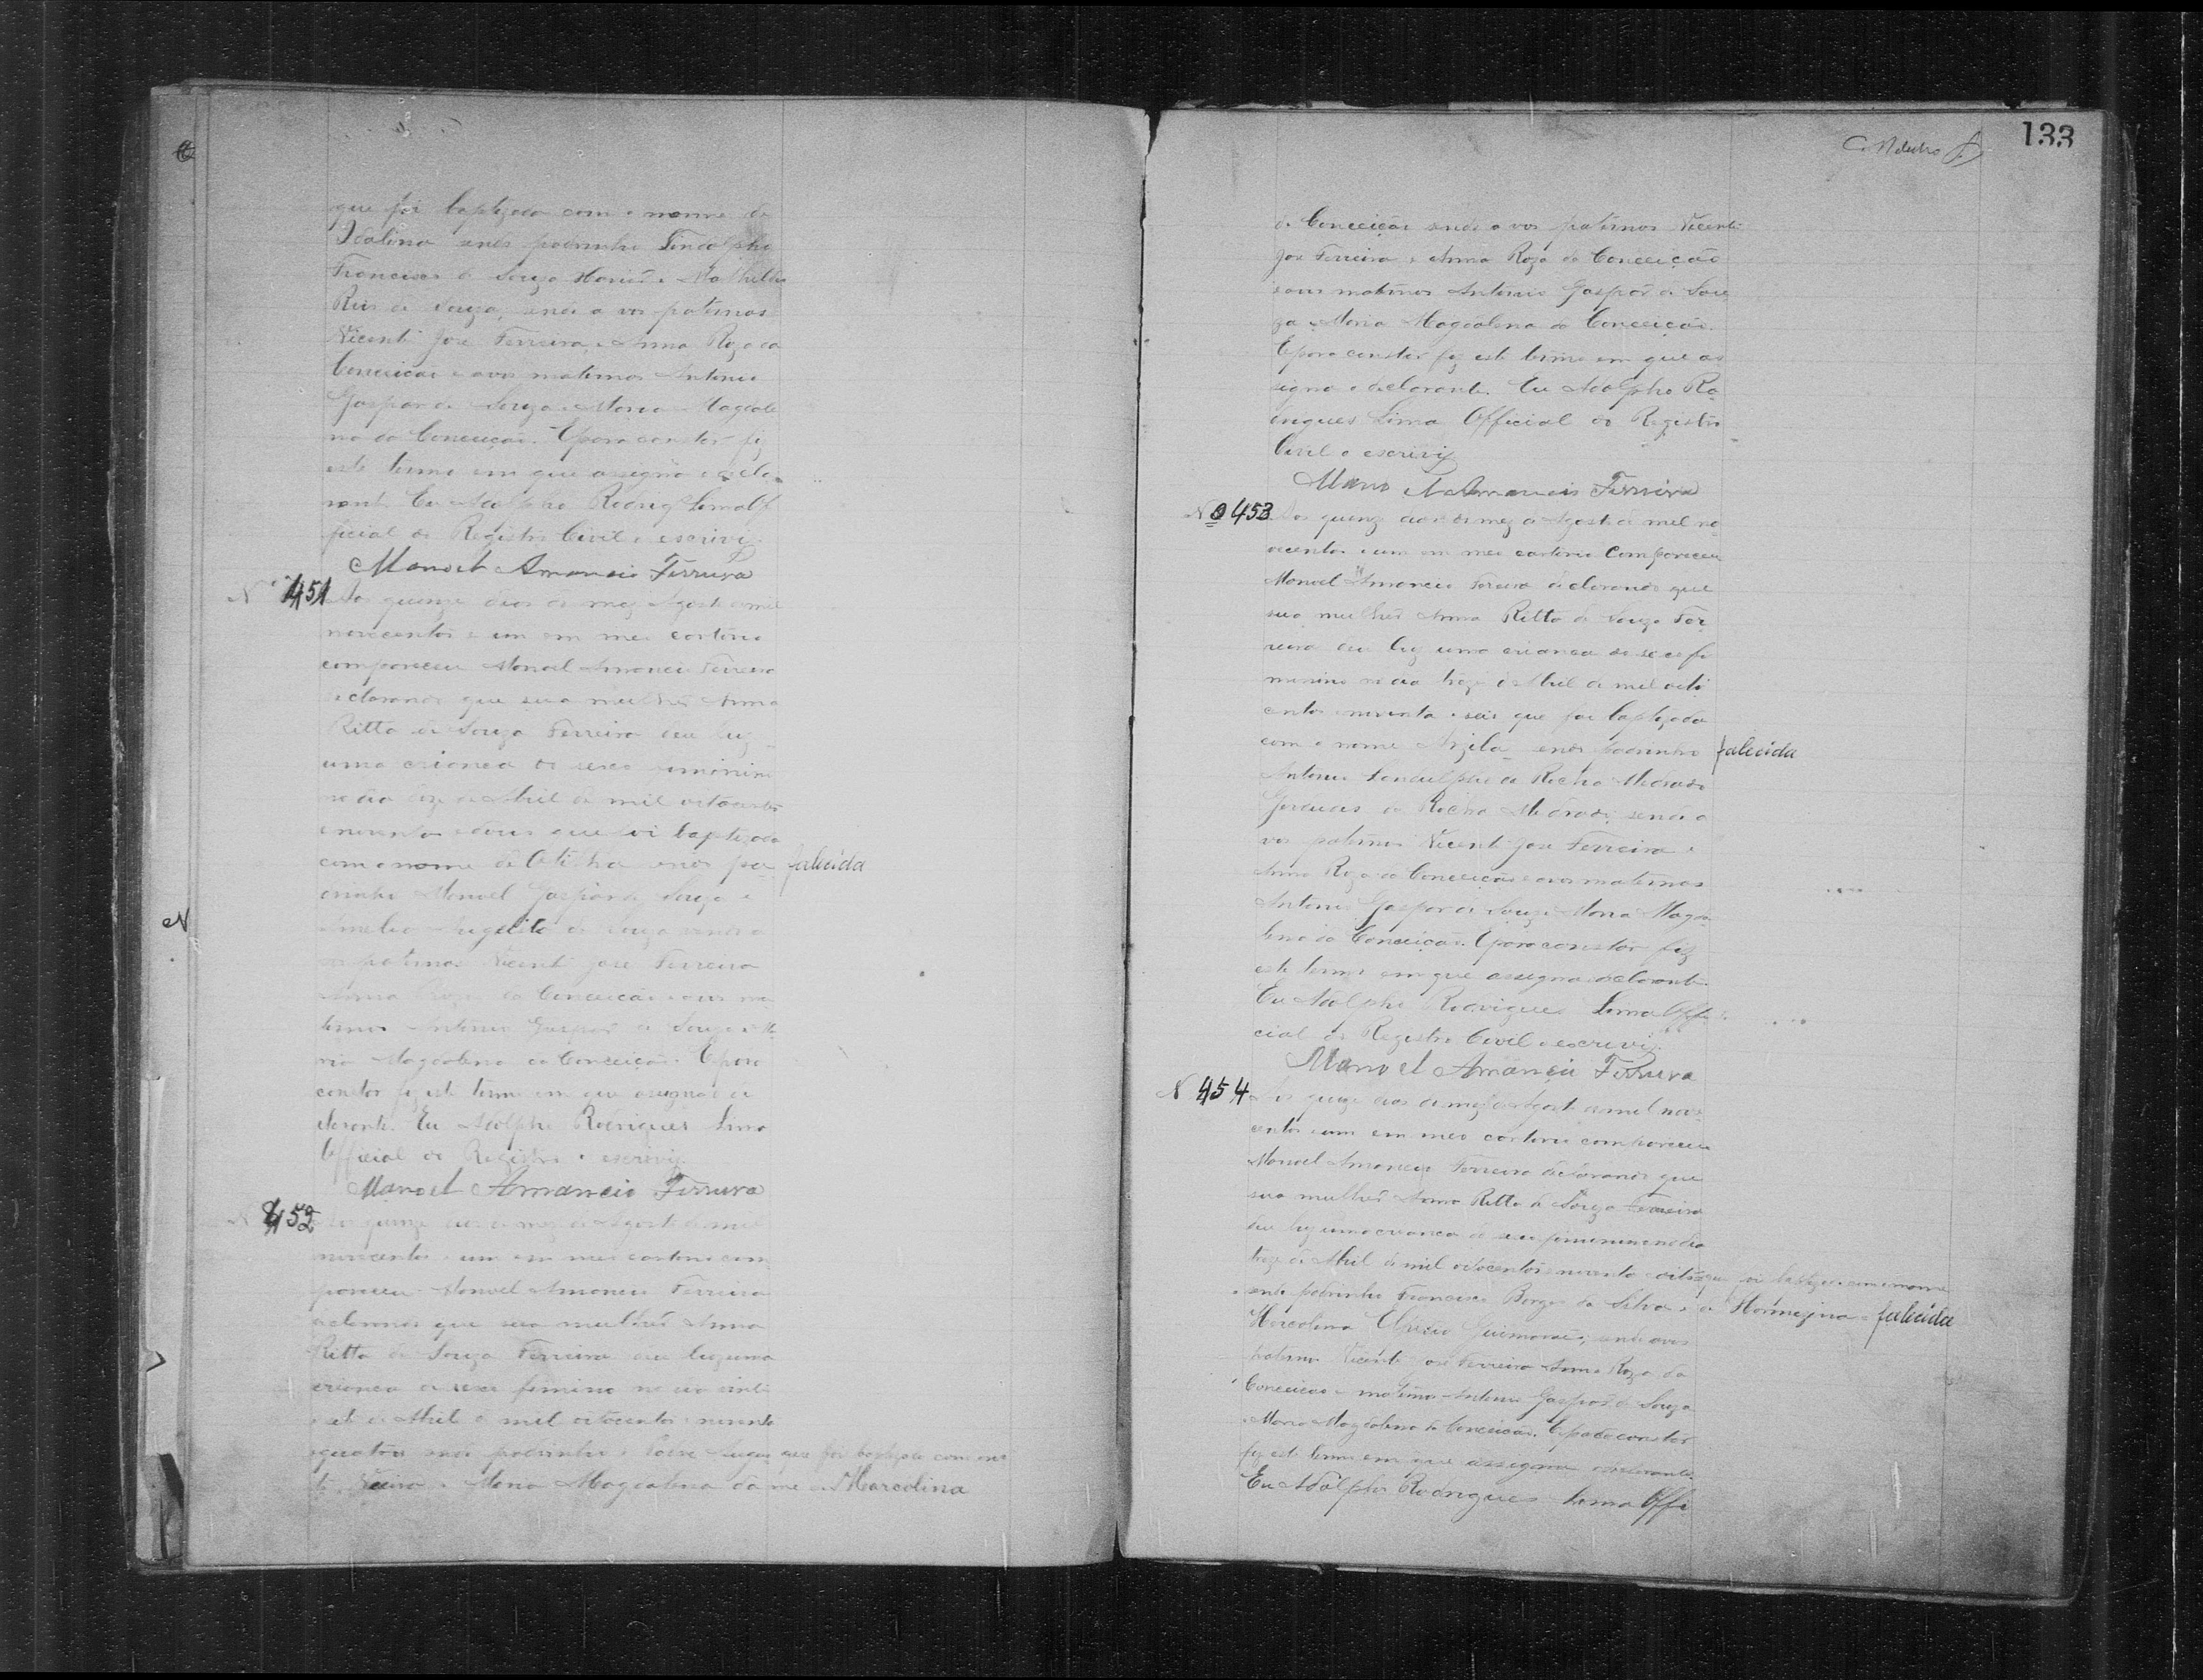 que foi baptizada com o nome de
Idalina sendo padrinho Lindolpho
Francisco de Souza Mathildes
Reis de Souza, sendo avos paternos
Vicente Jose Ferreira e Anna Roza da
Conceição e avos maternos Antonio
Gaspar de Souza e Maria Magdale
na da Conceição. E para constar fiz
este termo em que assigna o decla
rante Eu Adolpho Rodrigs Lima Of
ficial do Registro Civil o escrivi.
Manoel Amancio Ferreira
N 451 Aos quinze dias do mez Agosto de mil
novecentos e um em meu cartorio
compareceu Manoel Amancio Ferreira
declarando que sua mulher Anna
Ritta de Souza Ferreira deu luz
uma criança do sexo feminino
no dia de Abril de mil oitocentos
e noventa e dous que foi baptizada
com o nome de sendo pa falecida
drinho Manoel Gaspar de Souza e
Amelia de Souza sendo a
vos paternos Vicente Jose Ferreira
Anna Roza da Conceição e avos ma
ternos Antonio Gaspar de Souza e Ma
ria Magdalena da Conceição. E para
constar fiz este termo em que assigna o de
clarante. Eu Adolpho Rodrigues Lima
Official do Registro o escrivi.
Manoel Amancio Ferreira
N 452 Aos quinze dias do mez de Agosto de mil
novecentos e um em meu cartorio com
pareceu Manoel Amancio Ferreira
declarando que sua mulher Anna
Ritta de Souza Ferreira deu luz uma
criança do sexo feminino no dia vinte
e sete de Abril de mil oitocentos e noventa
e quatro sendo padrinho que foi baptizada com o no
Maria Magdalena da me de Marcolina
133
da Conceição sendo avos paternos Vicente
Jose Ferreira e Anna Roza da Conceição
e avos maternos Antonio Gaspar de Sou
za e Maria Magdalena da Conceição.
E para constar fiz este termo em que as
signa o declarante. Eu Adolpho Ro
drigues Lima Official do Registro
Civil o escrivi
Manoel Amancio Ferreira
No 453 Aos quinze dias do mez de Agosto de mil no
vecentos e um em meu cartorio compareceu
Manoel Amancio Ferreira declarando que
sua mulher Anna Ritta de Souza Fer
reira deu luz uma criança do sexo fe
minino no dia treze de Abril de mil oito
centos e noventa e seis que foi baptizada
com o nome Arzila sendo padrinho falecida
Antonio da Rocha Medrado
da Rocha Medrado, sendo a
vos paternos Vicente Jose Ferreira e
Anna Roza da Conceição e avos maternos
Antonio Gaspar de Souza e Maria Magda
lena da Conceição. E para constar fiz
este termo em que assigna o declarante.
Eu Adolpho Rodrigues Lima Offi
cial do Registro Civil o escrivi.
Manoel Amancio Ferreira
N 454 Aos quinze dias do mez de Agosto de mil nove
centos e um em meu cartorio compareceu
Manoel Amancio Ferreira declarando que
sua mulher Anna Ritta de Souza Ferreira
deu luz uma criança do sexo feminino no dia
treze de Abril de mil oitocentos e noventa e oito que foi baptizada com o nome
sendo padrinho Francisco Borges da Silva e de Hormezina falecida
Marcolina Guimarães, sendo avos
paternos Vicente Jose Ferreira Anna Roza da
Conceição e maternos Antonio Gaspar de Souza
e Maria Magdalena da Conceição. E para constar
fiz este termo em que assigna o declarante.
Eu Adolpho Rodrigues Lima Offi